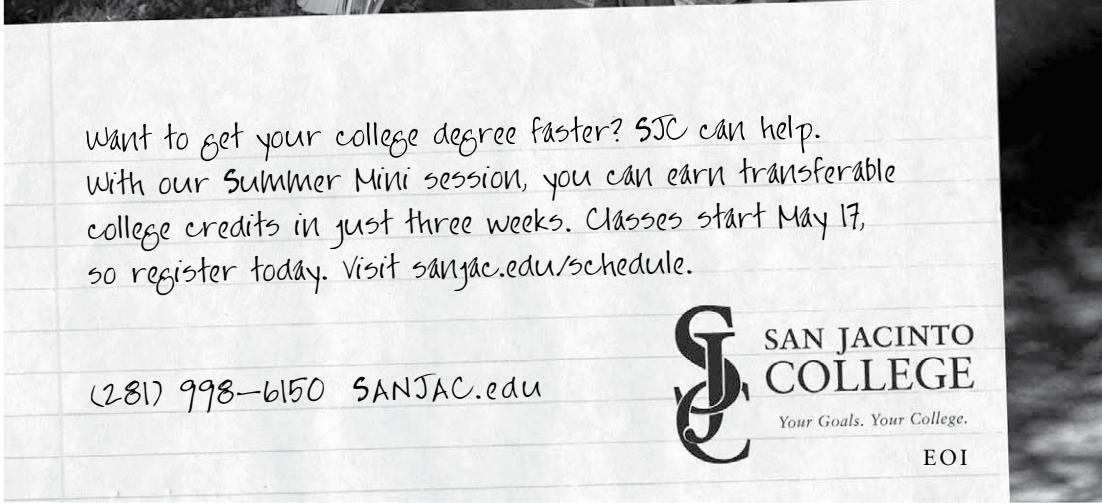 Want to get your college degree faster? SJC can help.
With our Summer Mini session, you can earn transferable
college credits in just three weeks. Classes start May 17,
so register today. Visit sanjac.edu/schedule.
(281) 998-6150 SANJAC.edu
SJC
SAN JACINTO
COLLEGE
Your Goals. Your College.
EOI